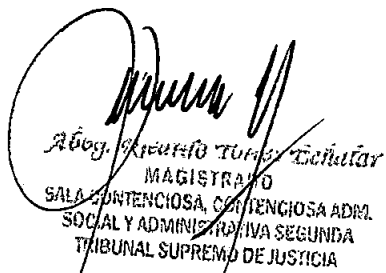 Abog. Ricardo Torres Echalar
MAGISTRADO
SALA CONTENCIOSA, CONTENCIOSA ADM.
SOCIAL Y ADMINISTRATIVA SEGUNDA
TRIBUNAL SUPREMO DE JUSTICIA